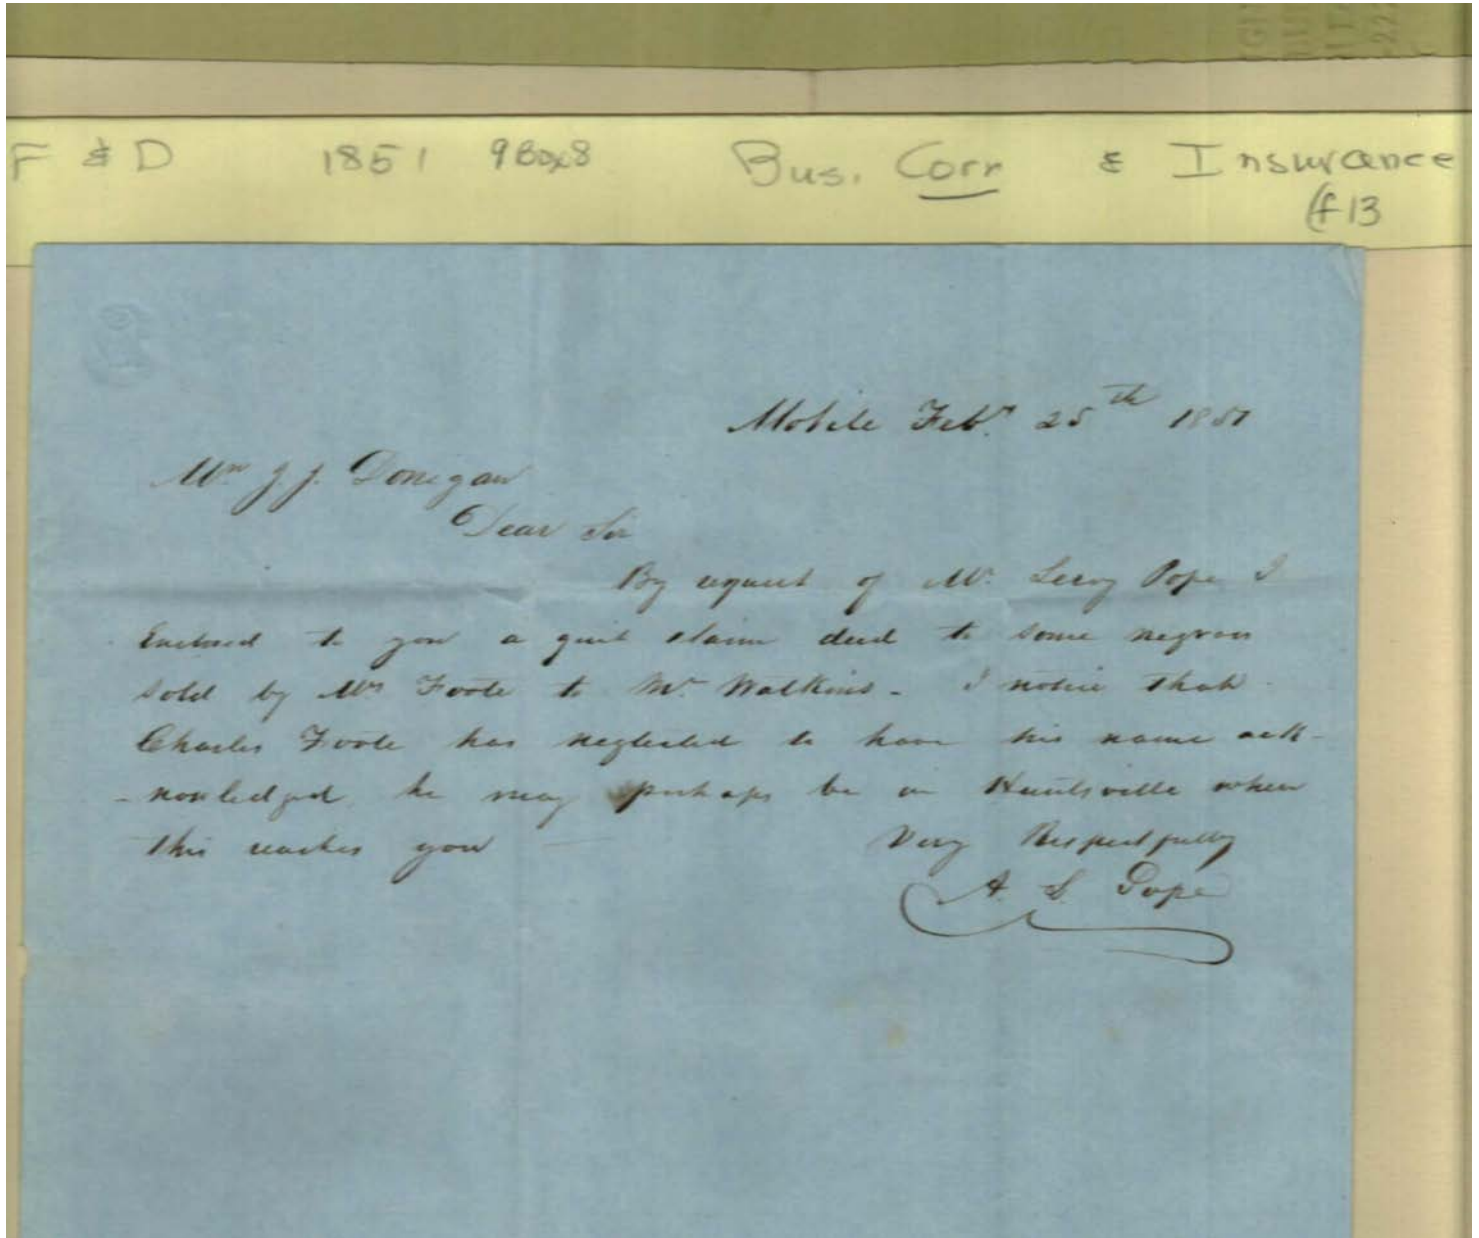 F & D 1851 9Box8 Bus. Corr & Insurance
(f 13
Mobile Feby. 25th 1851
Mr J. J. Donegan
Dear Sir
By request of Mr. Leroy Pope I
Enclosed to you a quit claim deed to some negroes
sold by Mrs Foote to Mr Watkins - I notice that
Charles Foote has neglected to have his name ack-
-nowledged, he may perhaps be in Huntsville when
this reaches you —
Very Respectfully
A. L. Pope